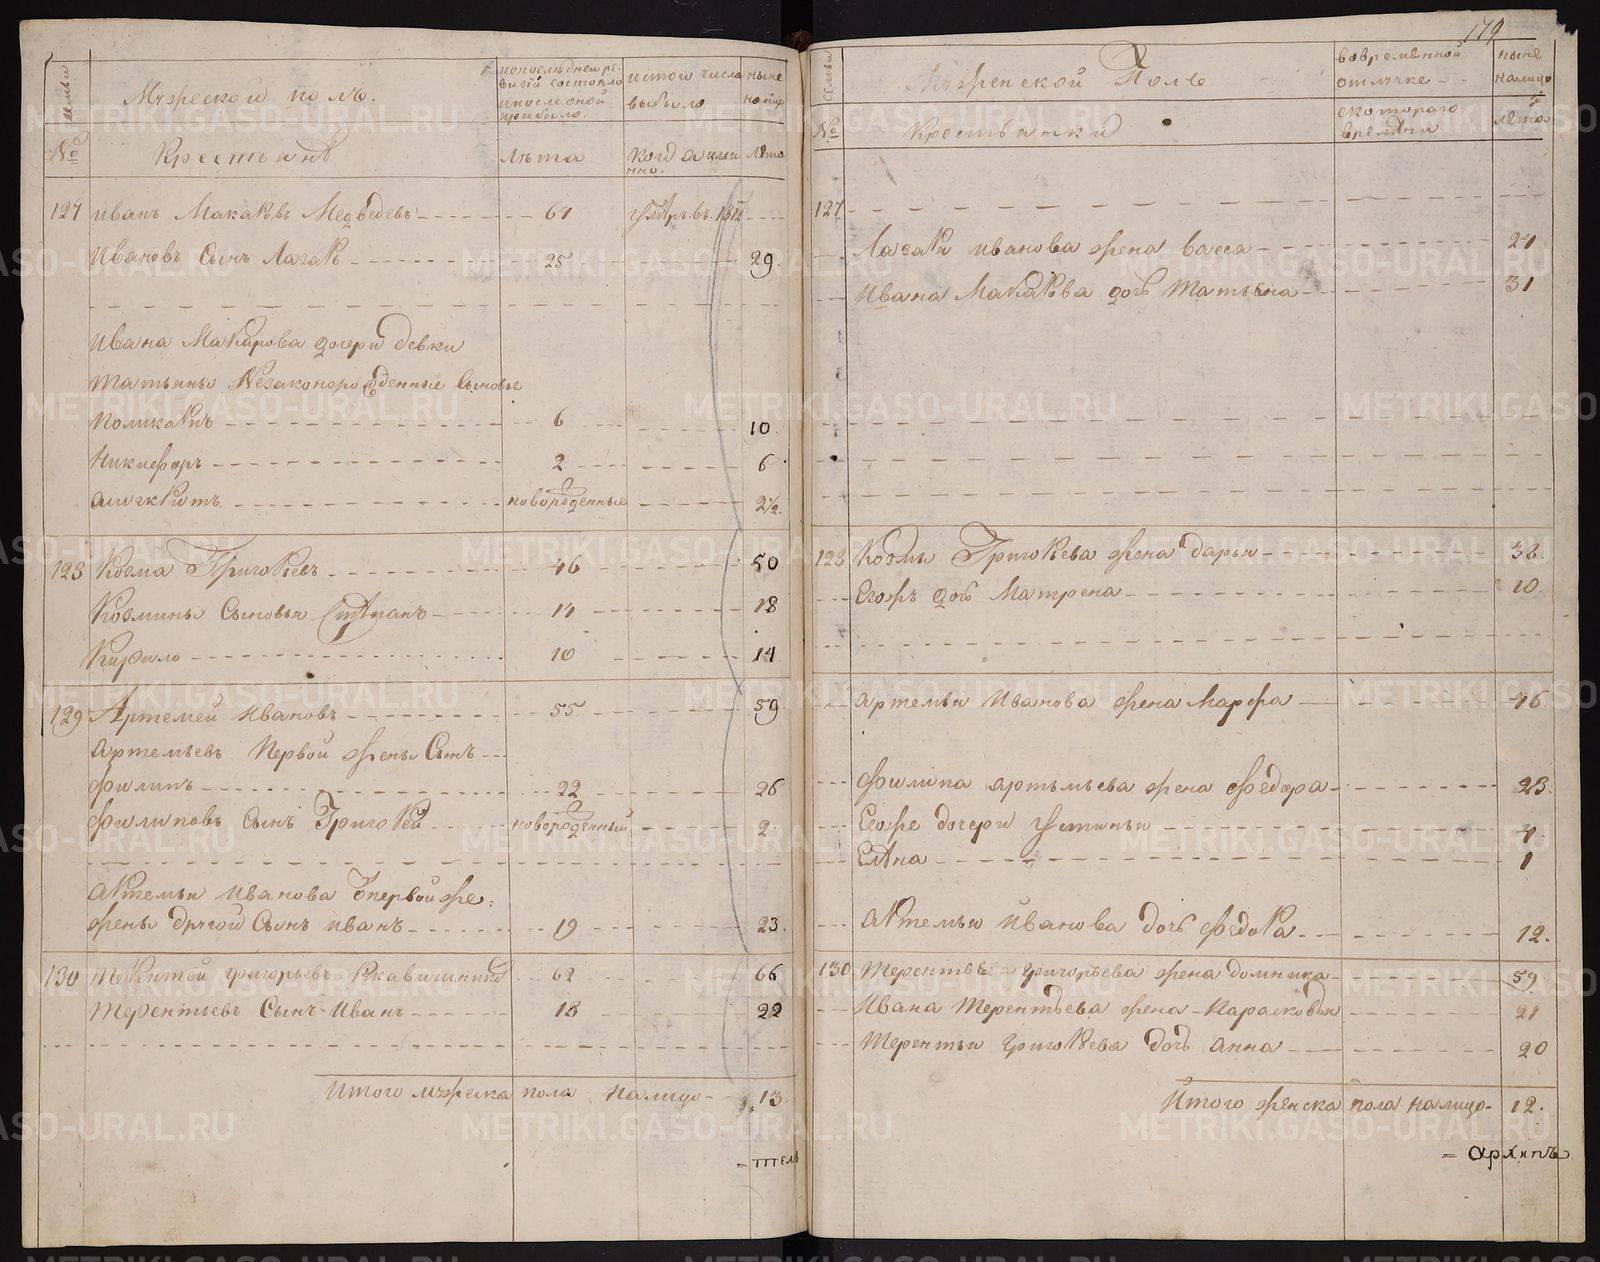 179
семьи
Мужеской полъ.
попоследней ре-
визіи состояло
ипосле оной
прибыло.
истого числа
выбыло
ныне
налицо
№
Крестьянѣ
лѣта
когда имя
нно.
лѣта
127 иванъ Макаровъ Медведевъ 61 умеръ въ 1812
Ивановъ Сынъ Лазарь 25 29.
Ивана Макарова дочери девки
Татьяны Незаконорожденные Сыновья
Поликарпъ 6 10
Никифоръ 2 6
новорожденные 2½.
128 Козма Григорьевъ 46 50
Козмины Сыновья Степанъ 14 18
Кирило 10 14
129 Артемей Ивановъ 55 59
Артемьевъ Первой жены Сынъ
Филипъ 22 26
Филиповъ Сынъ Григорей новорожденный 2.
Артемьи Иванова Спервой же:
жены другой Сынъ иванъ 19 23.
130 Терентей Григорьевъ Рукавишников 62 66
Терентьевъ Сынъ Иванъ 18 22
Итого мужеска пола налицо 13.
= тель
семьи
Муженской Полъ
вовременной
отлучке
ныне
налицо
№
Крестьянки
скотораго
времѣни
лѣта
127
Лазаря иванова жена васса 24
Ивана Макарова дочь Татьяна 31
128 Козмы Григорьева жена дарья 38.
Егожъ дочь Матрена 10.
Артемьи Иванова жена Марфа 46
Филипа артемьева жена Федора 23
Егоже дочери Устинья 4
Елена 1
Артемьи Иванова дочь Федора 12.
130 Терентьа Григорьева жена домника 59
Ивана Терентьева жена Парасковья 21
Терентьи Григорьева дочь Анна 20
Итого женска пола налицо 12.
= архипъ
METRIKI.GASO-URAL.RU